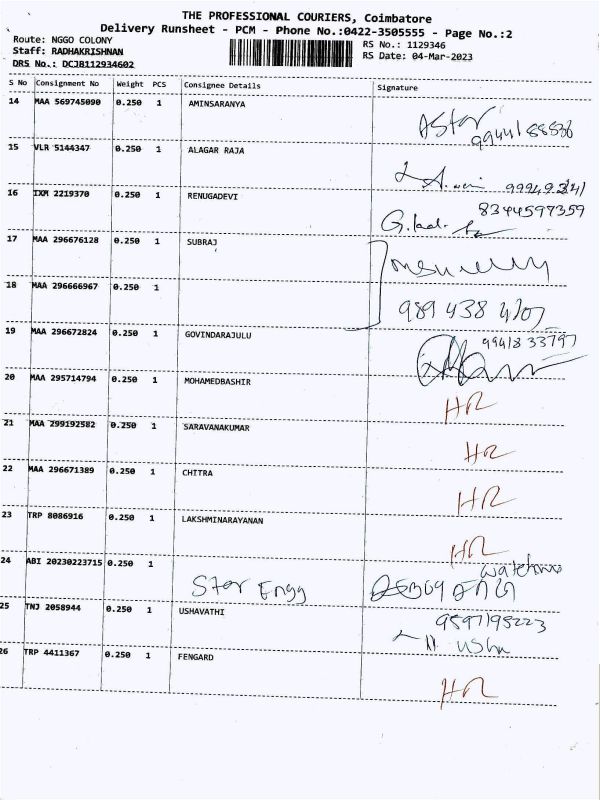 THE PROFESSIONAL COURIERS, Coimbatore
Delivery Runsheet - PCM - Phone No.:0422-3505555 - Page No.:2
Route: NGGO COLONY
RS No.: 1129346
Staff: RADHAKRISHNAN
RS Date: 04-Mar-2023
DRS No.: DCJB112934602
S No Consignment No Weight PCS Consignee Details Signature
14 MAA 569745090 0.250 1 AMINSARANYA
15 VLR 5144347 0.250 1 ALAGAR RAJA
16 IXM 2219370 0.250 1 RENUGADEVI
8344597359
17 MAA 296676128 0.250 1 SUBRAJ
18 MAA 296666967 0.250 1
989 438 4207
19 MAA 296672824 0.250 1 GOVINDARAJULU
99418 33797
20 MAA 295714794 0.250 1 MOHAMEDBASHIR
HR
21 MAA 299192582 0.250 1 SARAVANAKUMAR
HR
22 MAA 296671389 0.250 1 CHITRA
HR
23 TRP 8086916 0.250 1 LAKSHMINARAYANAN
HR
24 ABI 20230223715 0.250 1
Star Engg
25 TNJ 2058944 0.250 1 USHAVATHI
9597195223
N USha
26 TRP 4411367 0.250 1 FENGARD
HR